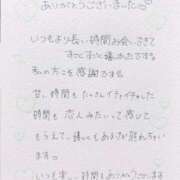 ありがとうございました
いつもより長い時間お会いできて
すっごく嬉しかったです
私の方こそ感謝です
甘い時間もたくさんイチャイチャした
時間も恋人みたいって感じて
もらえて、嬉しいもあるが照れちゃい
ます
いつも楽しい時間をありがとうございます